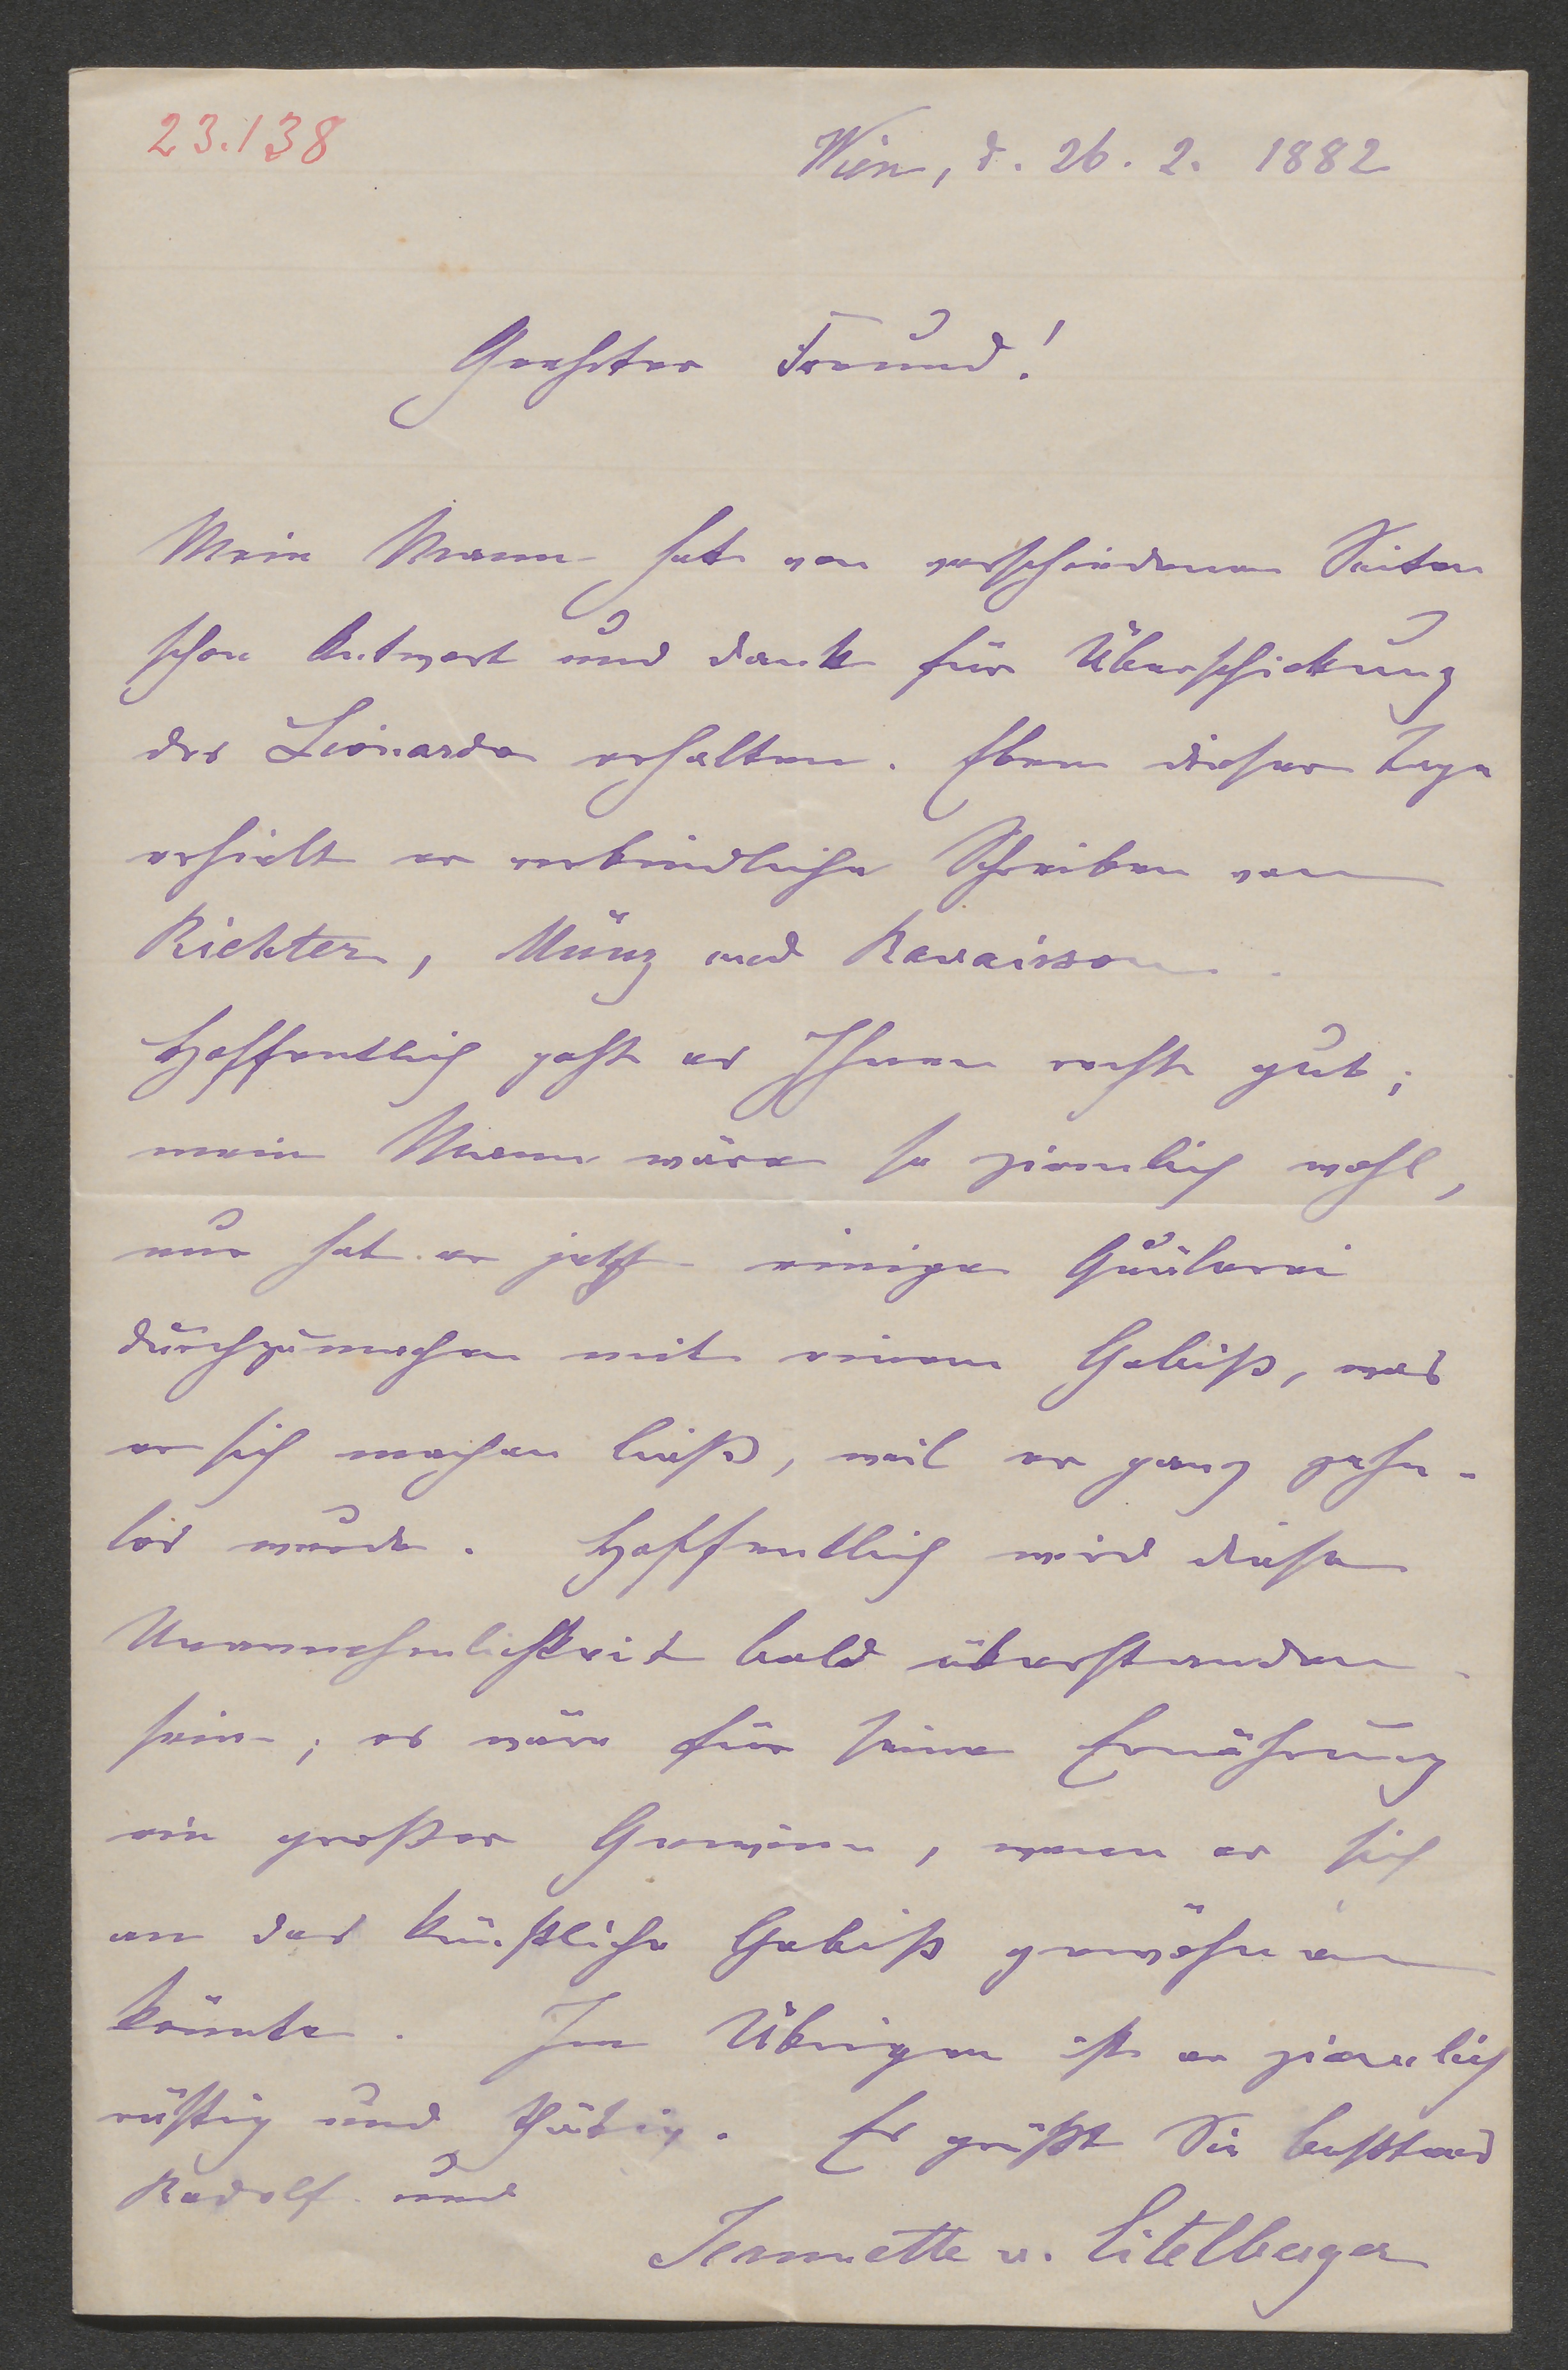 23.138
Wien, d. 26. 2. 1882
Geehrter Freund!
Mein Mann hat von verschiedenen Seiten
schon Antwort und Dank für Überschickung
des Lionardo erhalten. Eben dieser Tage
erhielt er verbindliche Schreiben von
Richter, Münz und Ravaisson.
Hoffentlich geht es Ihnen recht gut;
mein Mann wäre so ziemlich wohl,
nur hat er jetzt einige Quälerei
durchzumachen mit einem Gebiß, was
er sich machen ließ, weil er ganz zahn-
los wurde. Hoffentlich wird diese
Unannehmlichkeit bald überstanden
sein; es wäre für seine Ernährung
ein großer Gewinn, wenn er sich
an das künstliche Gebiß gewöhnen
könnte. Im Übrigen ist er ziemlich
rüstig und thätig. Es grüßt Sie bestens
Rudolf und
Jeannette v. Eitelberger